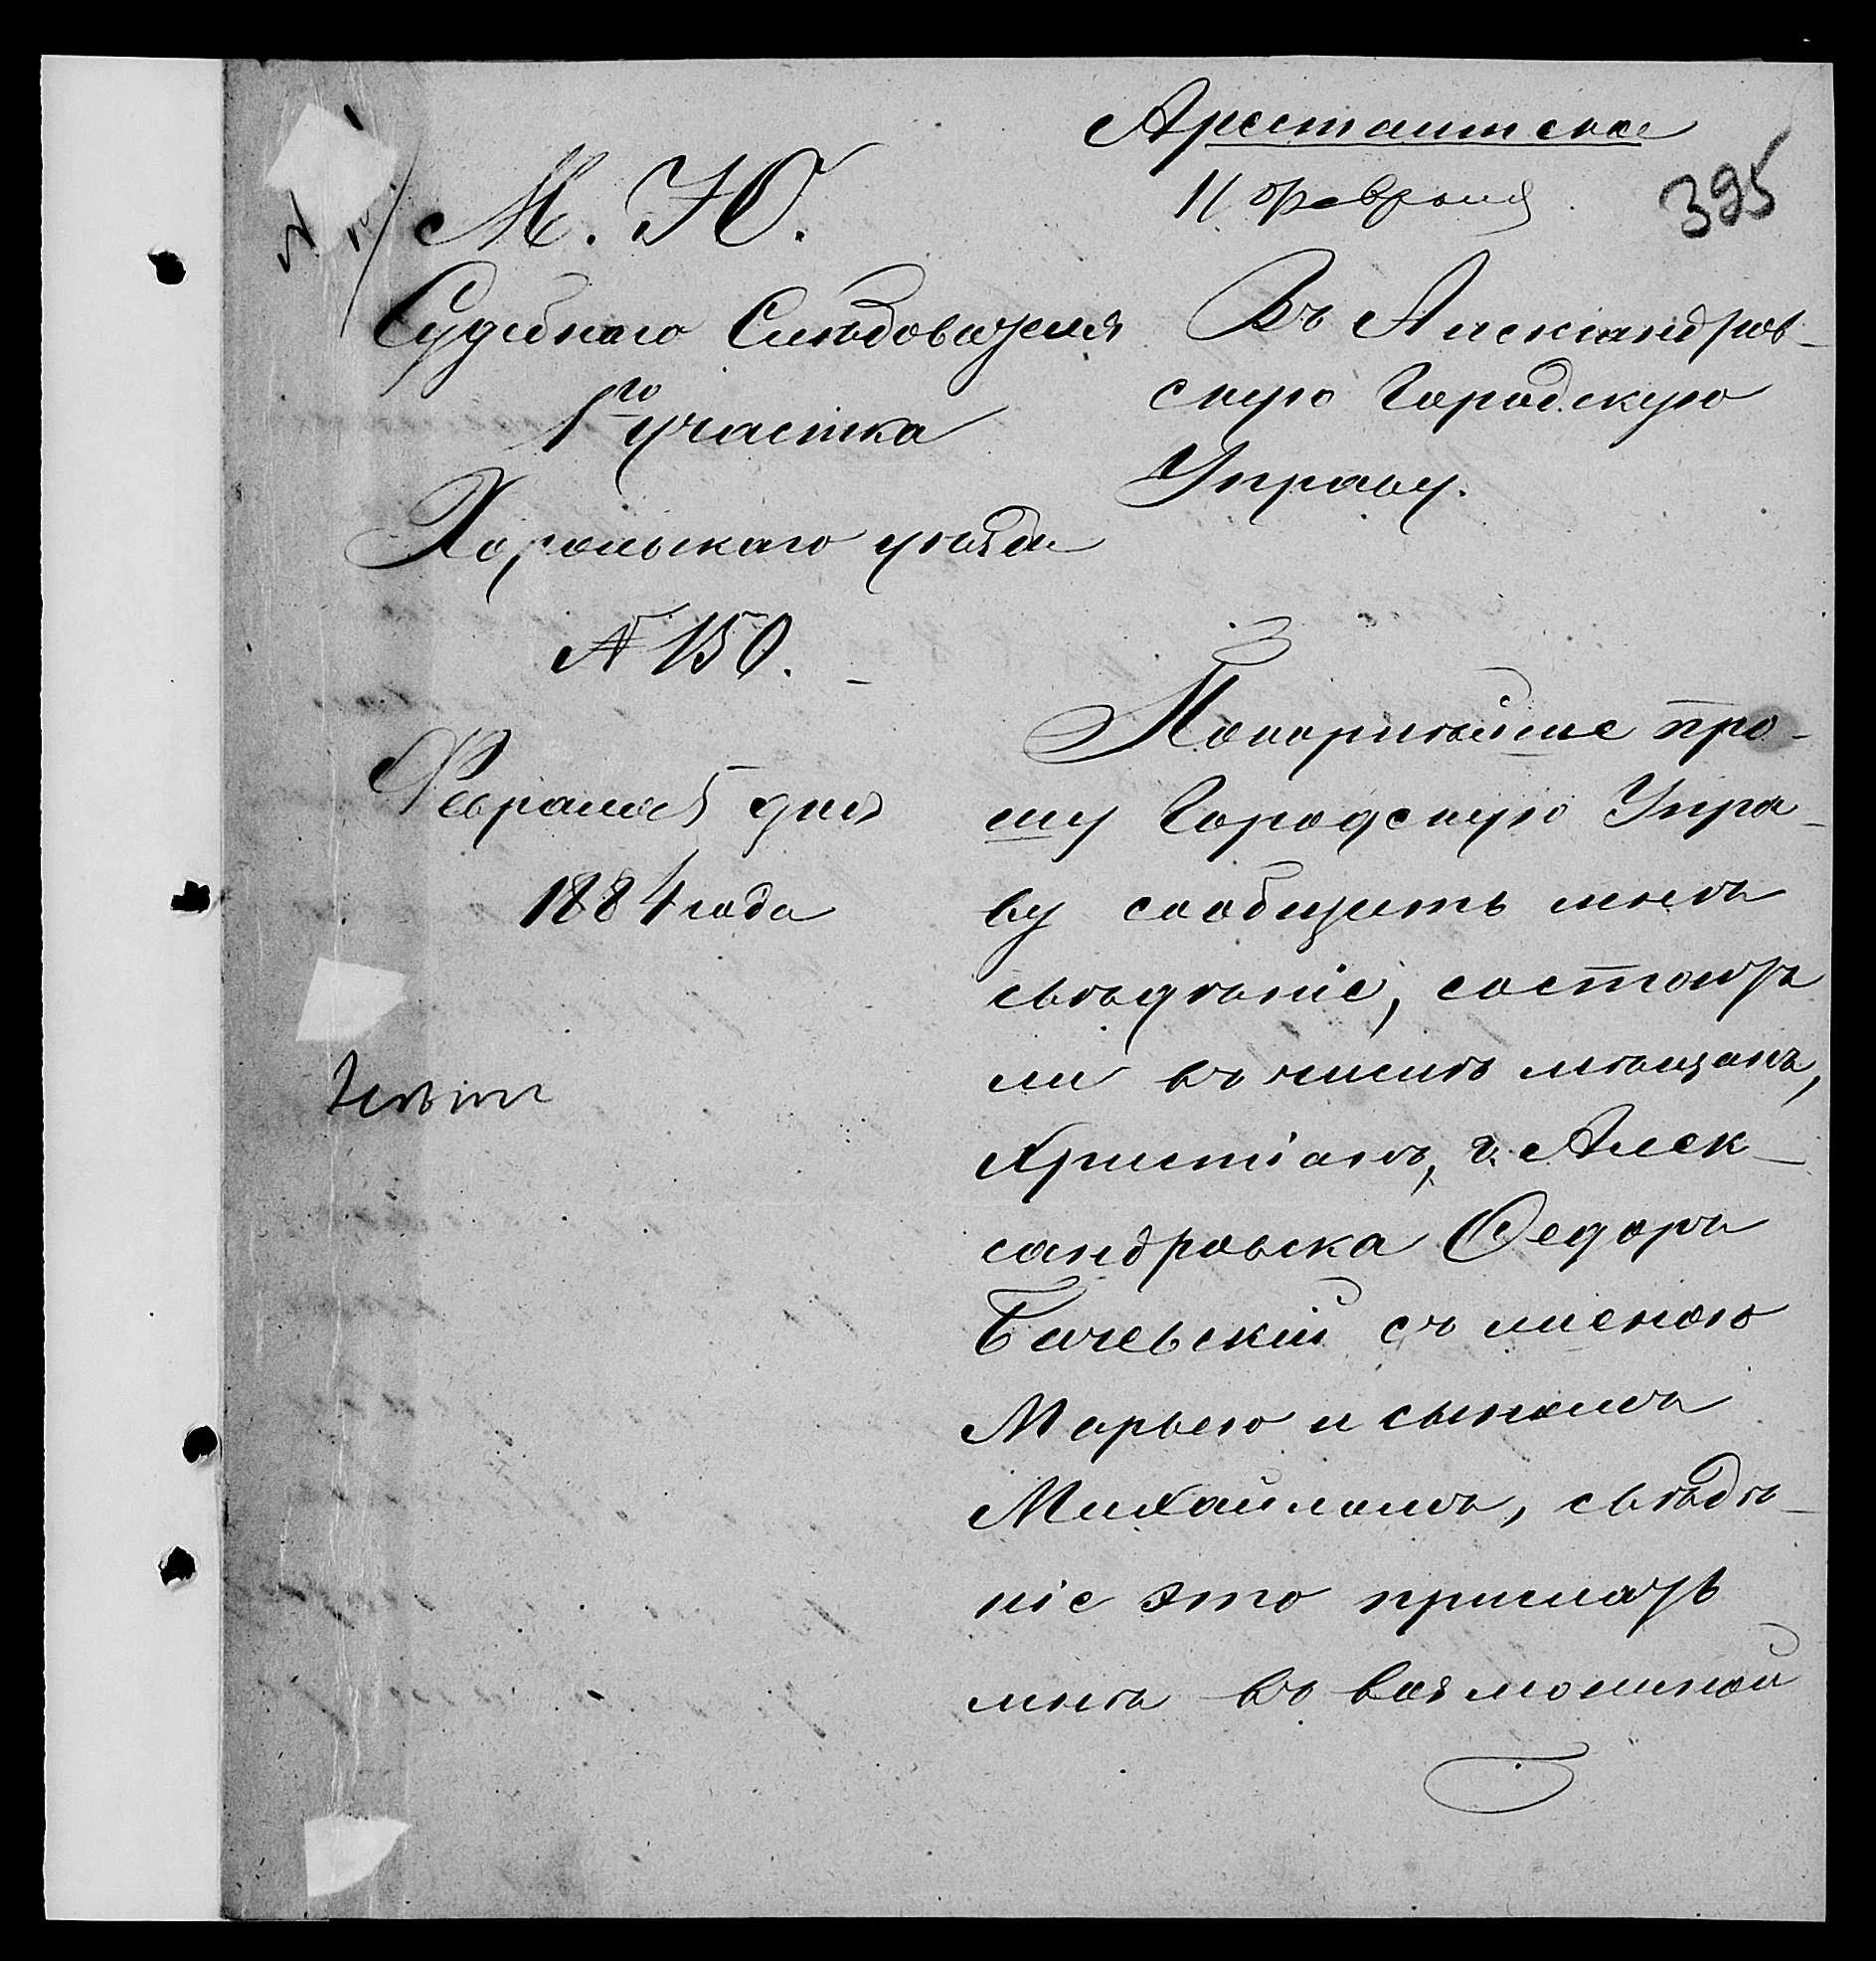 Арестантское
11 февраля
395
М. Ю.
Судебнаго Слѣдователя
1го участка
Хорольскаго уѣзда
№ 150.
Февраля 5 дня
1884 года
Въ Александров-
скую Городскую
Управу.
Покорнѣйше про-
шу Городскую Упра-
ву сообщить мнѣ
свѣдѣніе, состоитъ
ли въ числѣ мѣщанъ,
христіанъ, г. Алек-
сандровска Ѳедоръ
Бачевскій съ женою
Марьею и сыномъ
Михайломъ, свѣдѣ-
ніе это прислать
мнѣ въ возможной